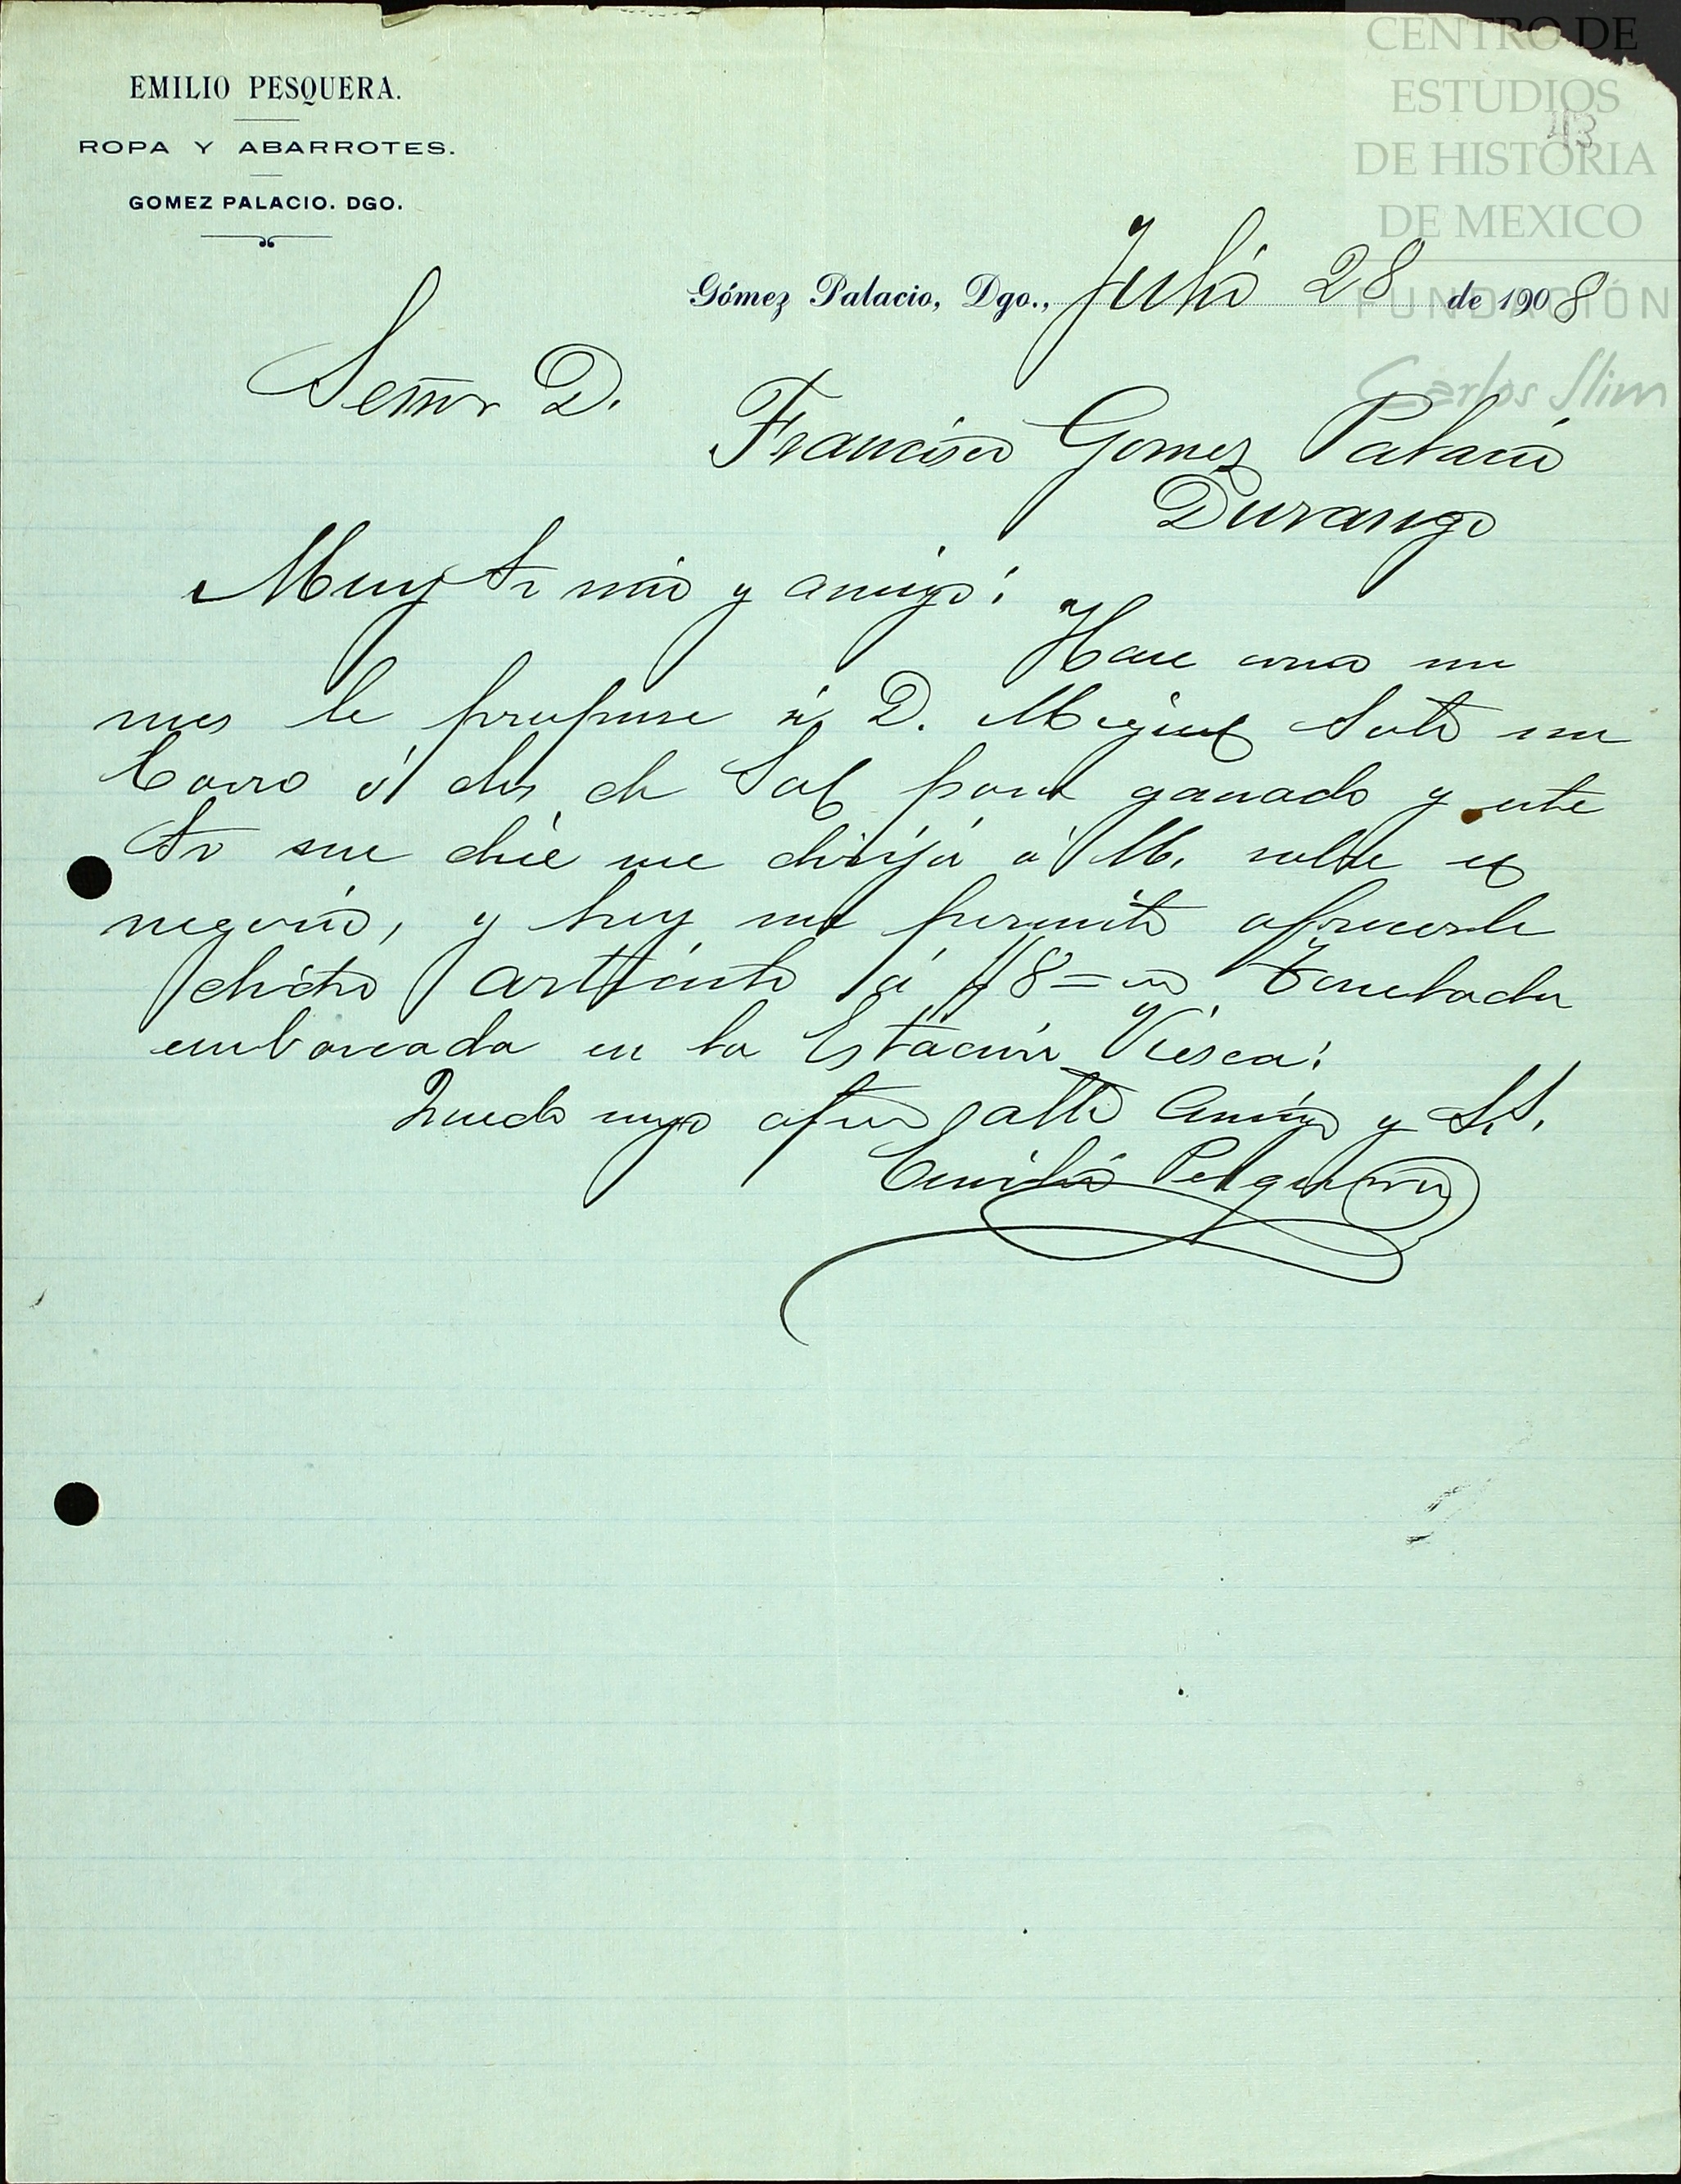 CENTRO DE
ESTUDIOS
DE HISTORIA
DE MEXICO
FUNDACIÓN
Carlos Slim
43
EMILIO PESQUERA.
ROPA Y ABARROTES.
GOMEZ PALACIO. DGO.
Gómez Palacio, Dgo., Julio 28 de 1908
Señor D.
Francisco Gomez Palacio
Durango
Muy Sr mio y amigo:
Hace como un
mes le propuse á D. Miguel Soto un
Carro ó dos de Sal para ganado y este
Sr me dice me dirija á U. sobre el
negocio, y hoy me permito ofrecerle
dicho artículo á $8= Tonelada
embarcada en la Estación Viesca.
Quedo suyo afmo atto Amigo y S.S.
Emilio Pesquera